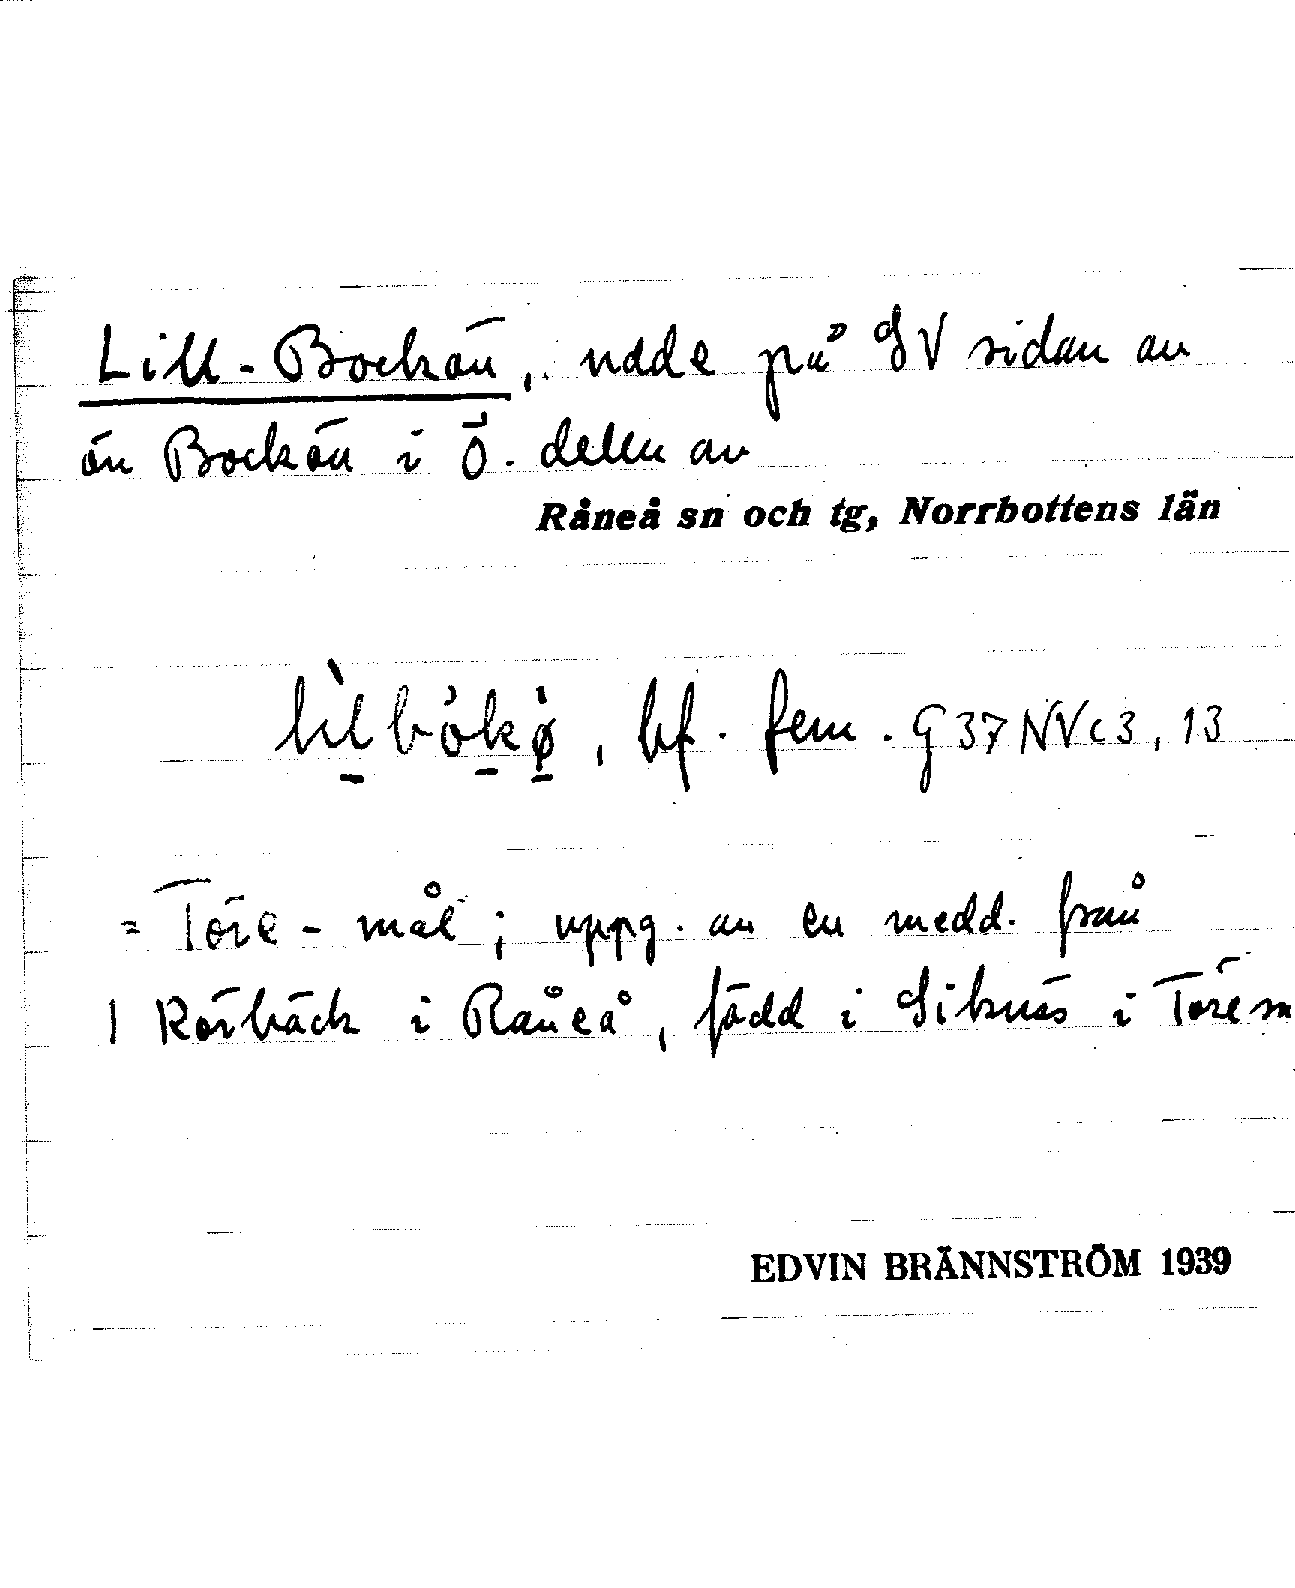 Lill-Bockön, udde på SV sidan av
ön Bockön i Ö. delen av
Råneå sn och tg, Norrbottens län
bf. fem. G37NVc3, 13
= Töre-mål; uppg. av en medd. från
Rörbäck i Råneå, född i Siknäs i Töre sn
EDVIN BRÄNNSTRÖM 1939